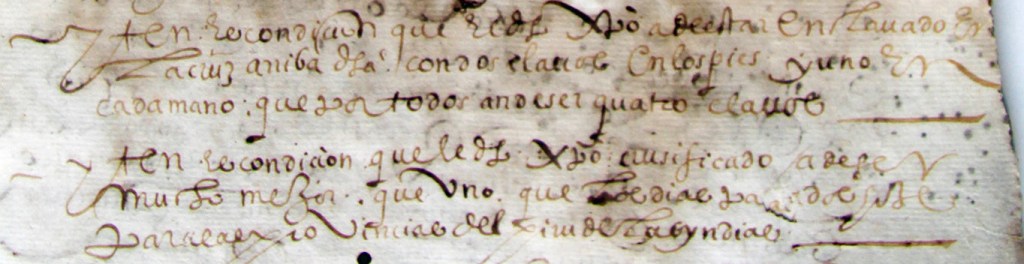 Yten es condiçion que el dho xpō a de estar enclauado en
la cruz arriba dha con dos clauos en los pies y uno en
cada mano que por todos an de ser quatro clauos
Yten es condiçion que el dho xpō crusificado a de ser
mucho mejor que uno que los dias pasados hiçe
para las prouinçias del piru de las yndias